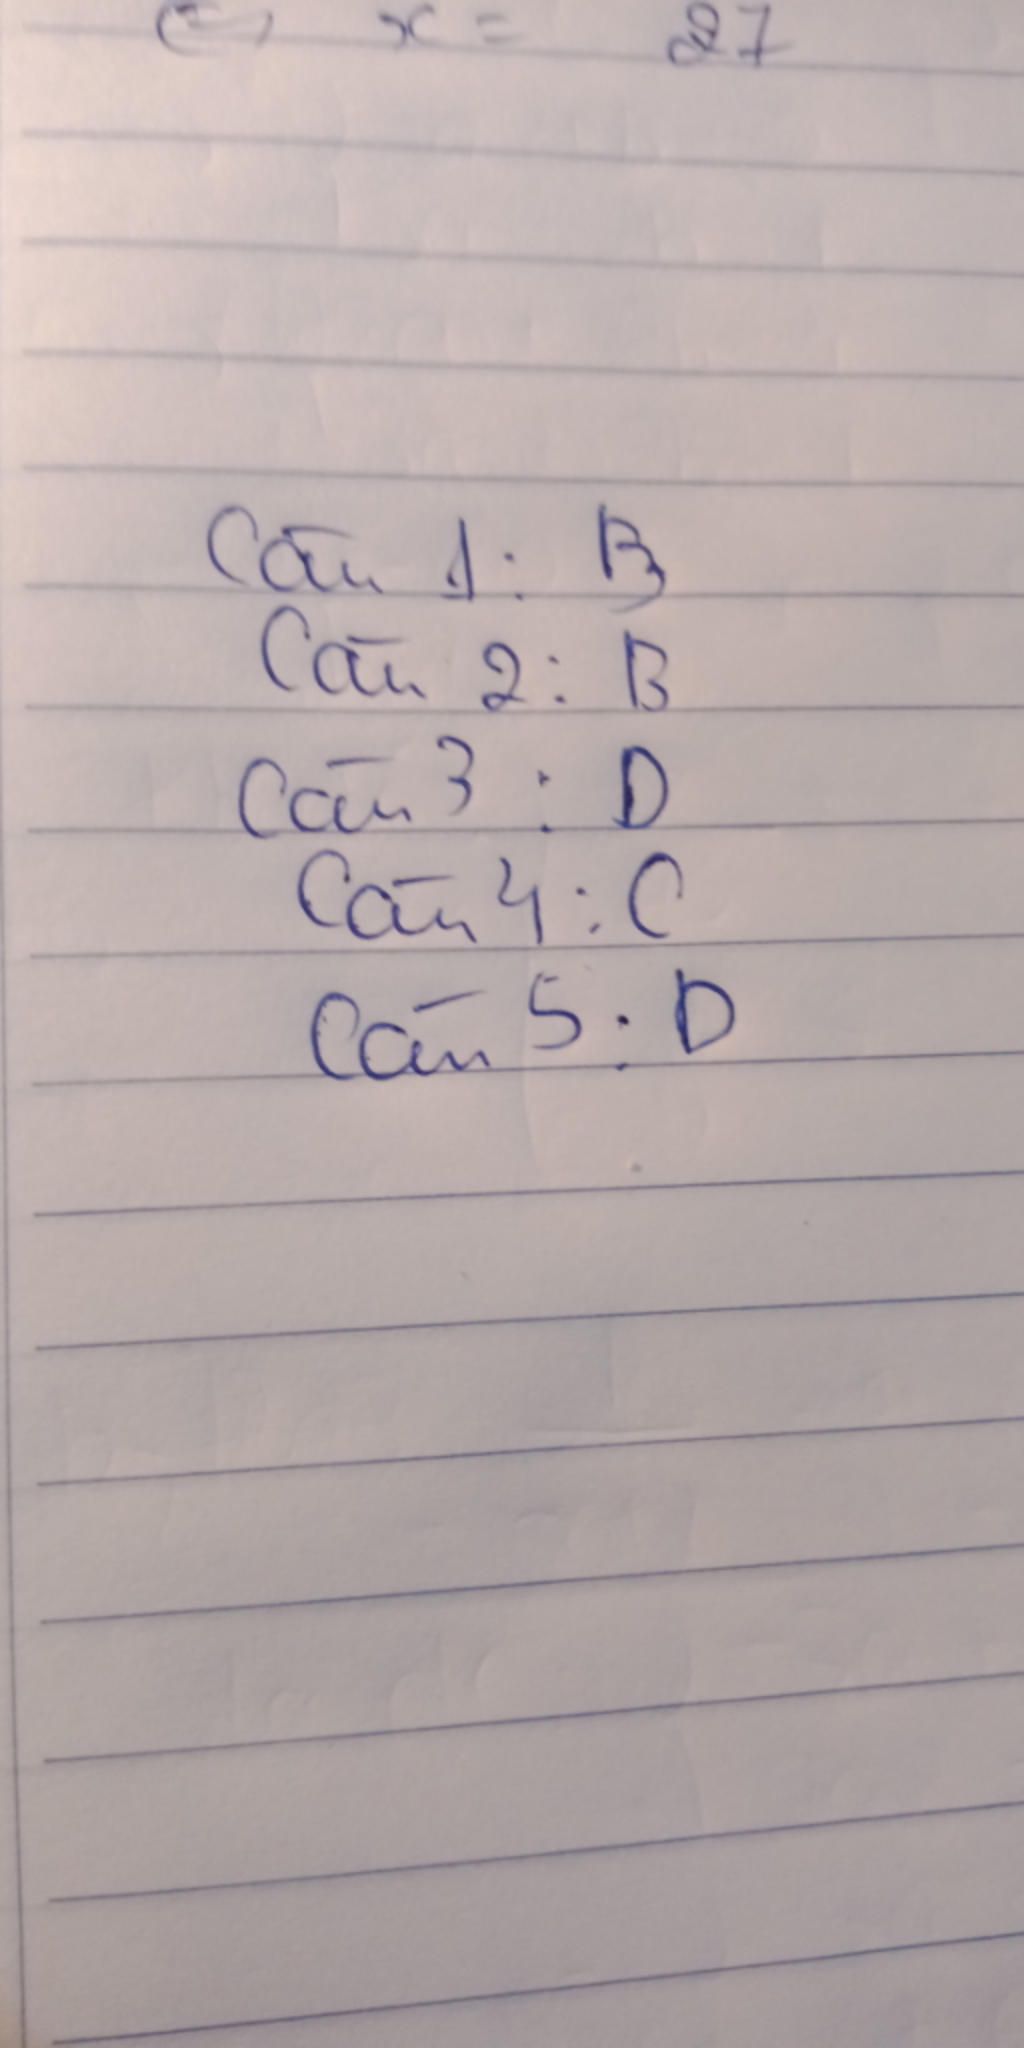 ⇔ x = 27
Câu 1: B
Câu 2: B
Câu 3: D
Câu 4: C
Câu 5: D